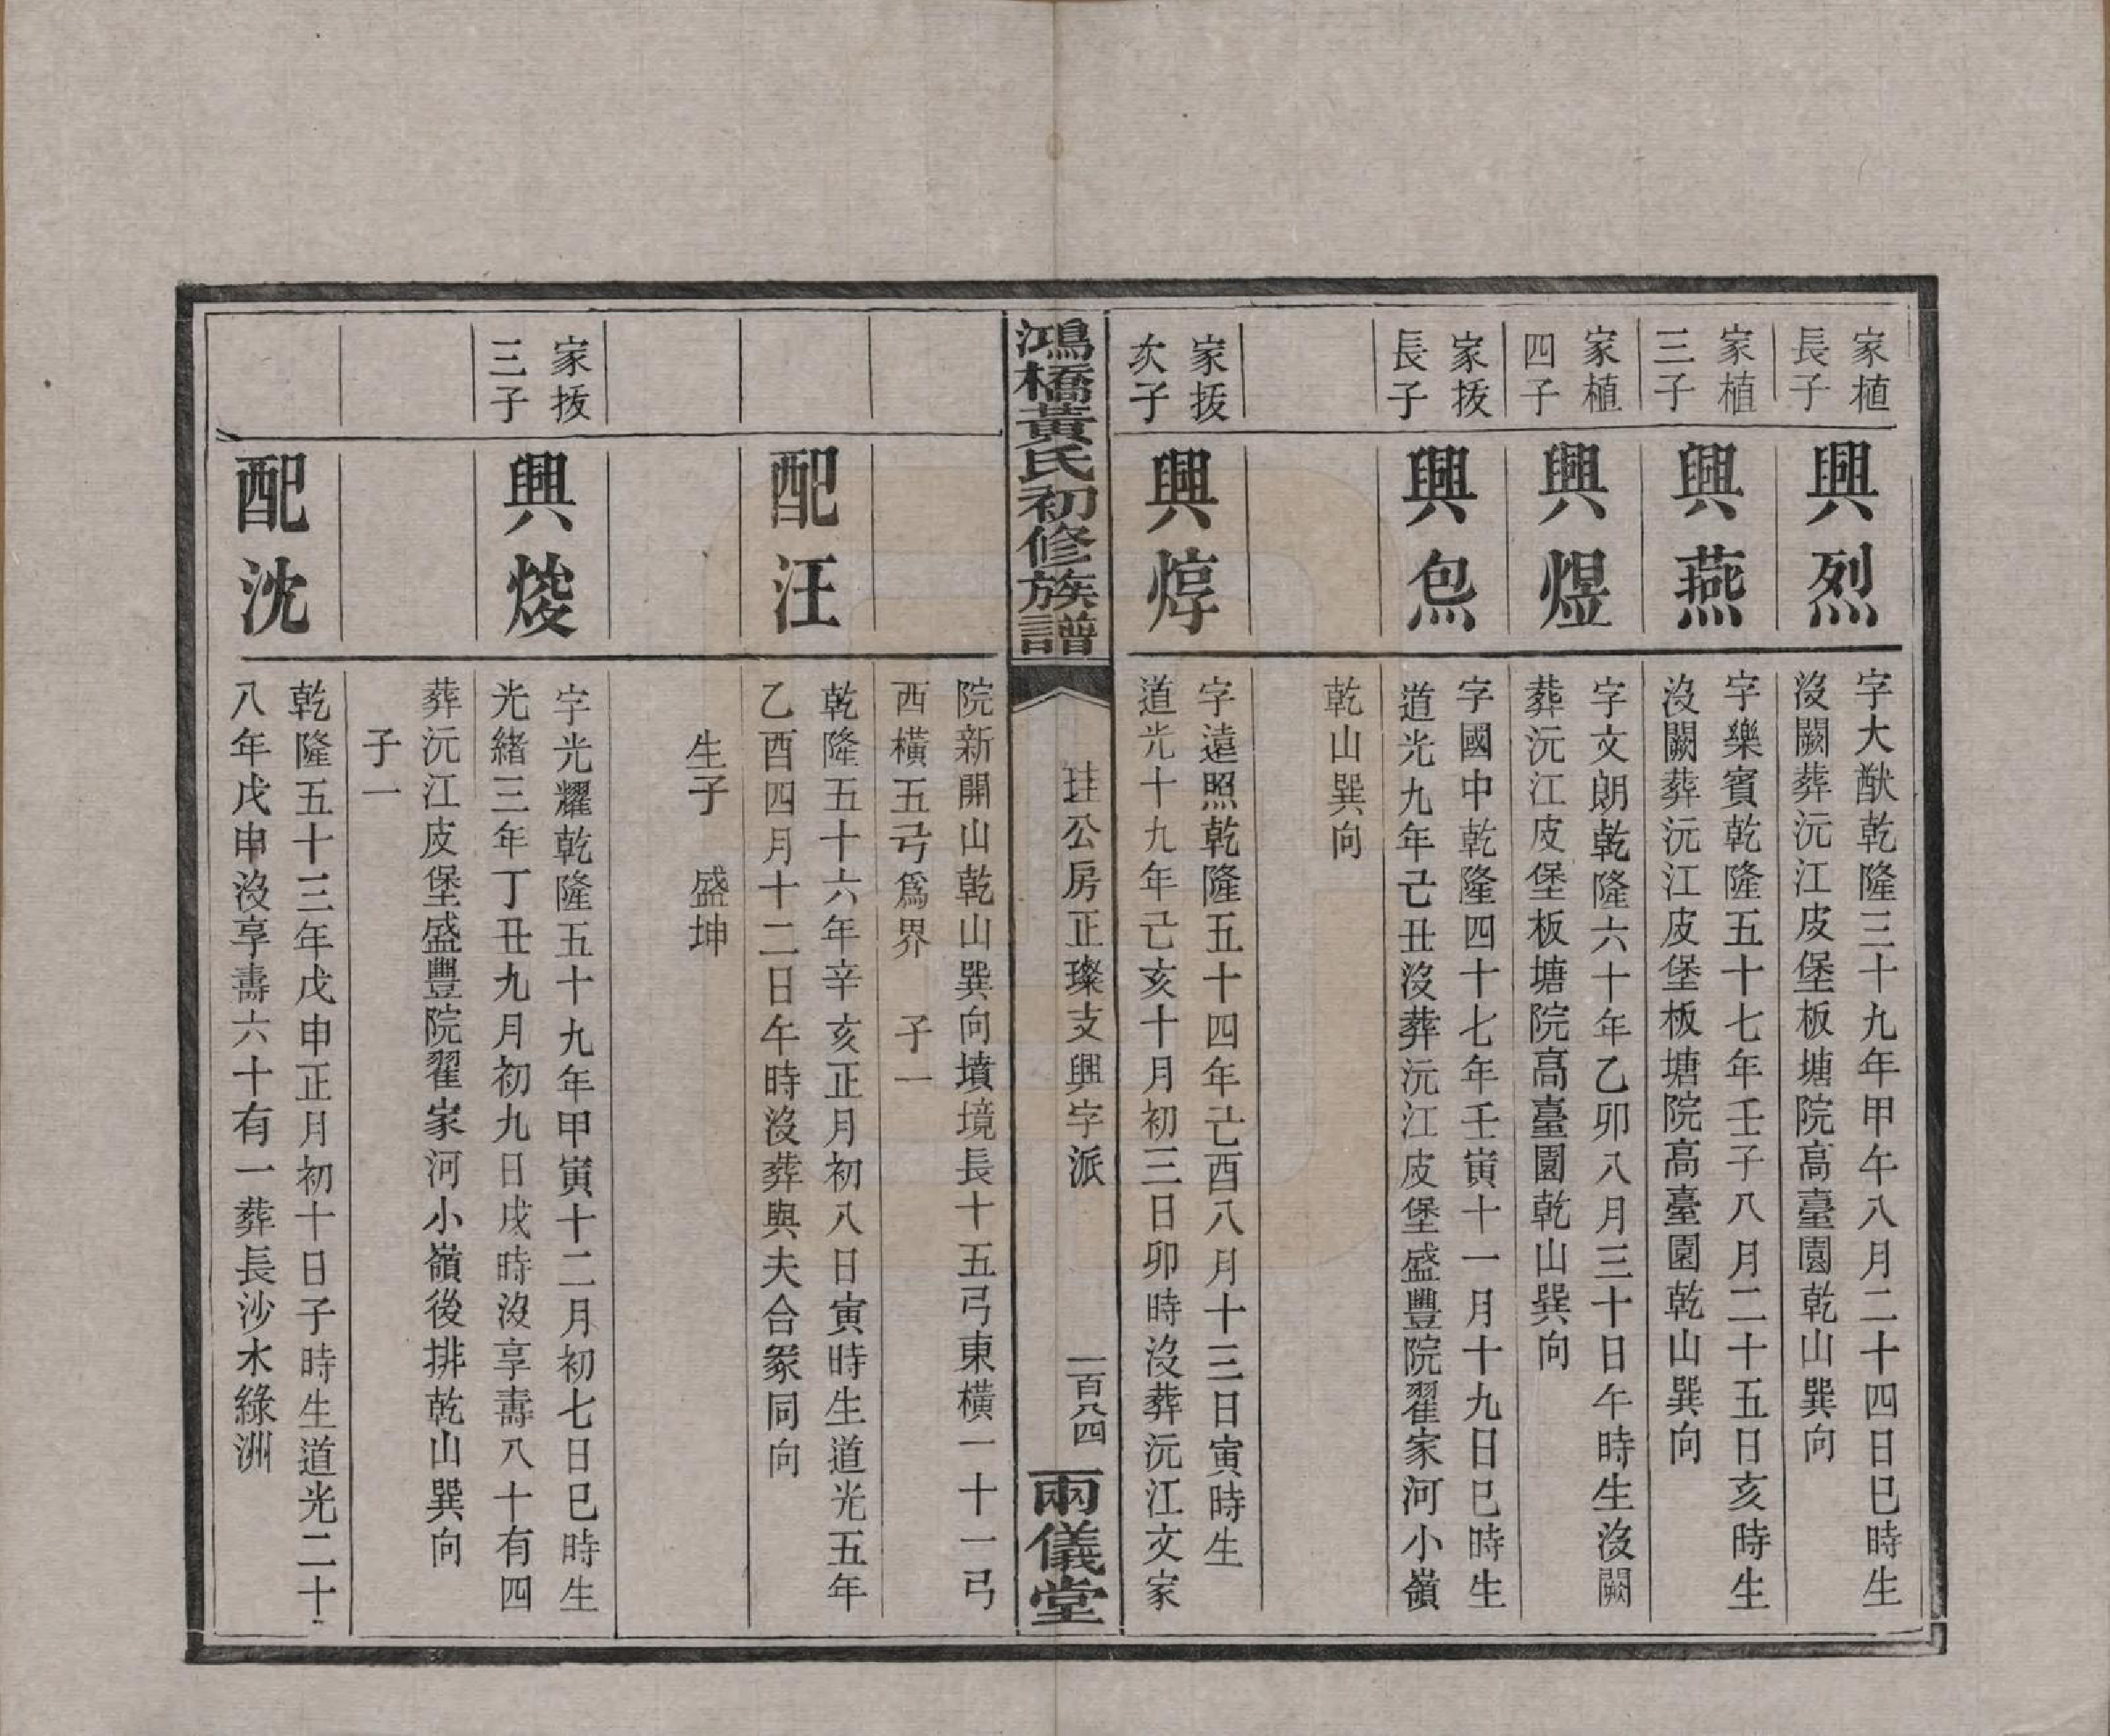 家植
長子
興烈
字大猷乾隆三十九年甲午八月二十四日巳時生
沒闕葬沅江皮堡板塘院高臺園乾山巽向
家植
三子
興燕
字樂賓乾隆五十七年壬子八月二十五日亥時生
沒闕葬沅江皮堡板塘院高臺園乾山巽向
家植
四子
興煜
字文朗乾隆六十年乙卯八月三十日午時生沒闕
葬沅江皮堡板塘院高臺園乾山巽向
家拔
長子
興炰
字國中乾隆四十七年壬寅十一月十九日巳時生
道光九年己丑沒葬沅江皮堡盛豐院翟家河小嶺
乾山巽向
家拔
次子
興焞
字遠照乾隆五十四年己酉八月十三日寅時生
道光十九年己亥十月初三日卯時沒葬沅江文家
鴻橋黃氏初修族譜
珪公房正璨支興字派
一百八四
兩儀堂
院新開山乾山巽向墳境長十五弓東橫一十一弓
西橫五弓爲界 子一
配汪
乾隆五十六年辛亥正月初八日寅時生道光五年
乙酉四月十二日午時沒葬與夫合冢同向
生子 盛坤
家拔
三子
興焌
字光耀乾隆五十九年甲寅十二月初七日巳時生
光緒三年丁丑九月初九日戌時沒享壽八十有四
葬沅江皮堡盛豐院翟家河小嶺後排乾山巽向
子一
配沈
乾隆五十三年戊申正月初十日子時生道光二十
八年戊申沒享壽六十有一葬長沙水綠洲